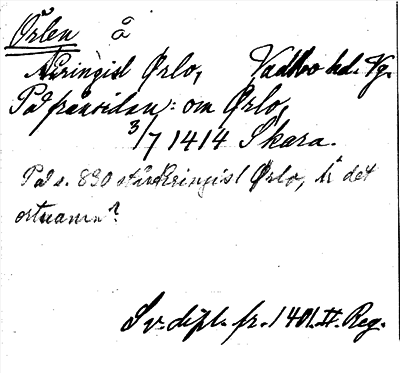 Örlen å
Niringisl Ørlo, Vadsbo hd. Vg.
På frånsidan: om Ørlo,
3/7 1414 Skara.
På s. 830 står Niringisl Ørlo, är det
ortnamn?
Sv. dipl. fr. 1401. II. Reg.